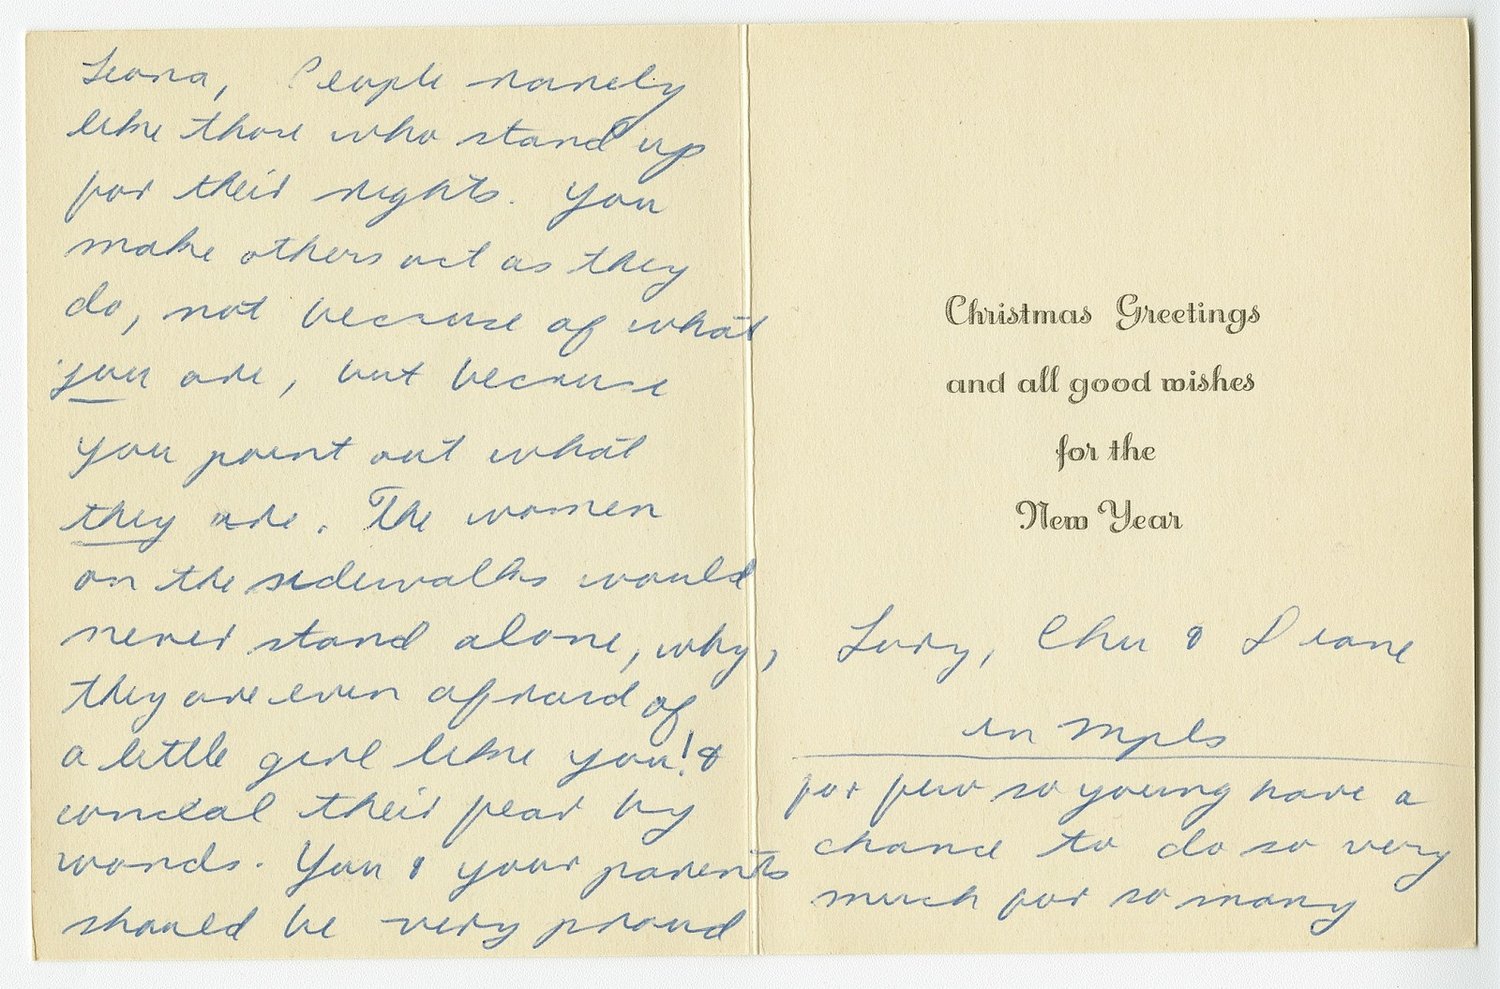 Leona, People rarely
like those who stand up
for their rights. You
make others act as they
do, not because of what
you are, but because
you point out what
they are. The women
on the sidewalks would
never stand alone, why,
they are even afraid of
a little girl like you! &
conceal their fear by
words. You & your parents
should be very proud
Christmas Greetings
and all good wishes
for the
New Year
Lory, Chu & Diane
in Mpls
for few so young have a
chance to do so very
much for so many